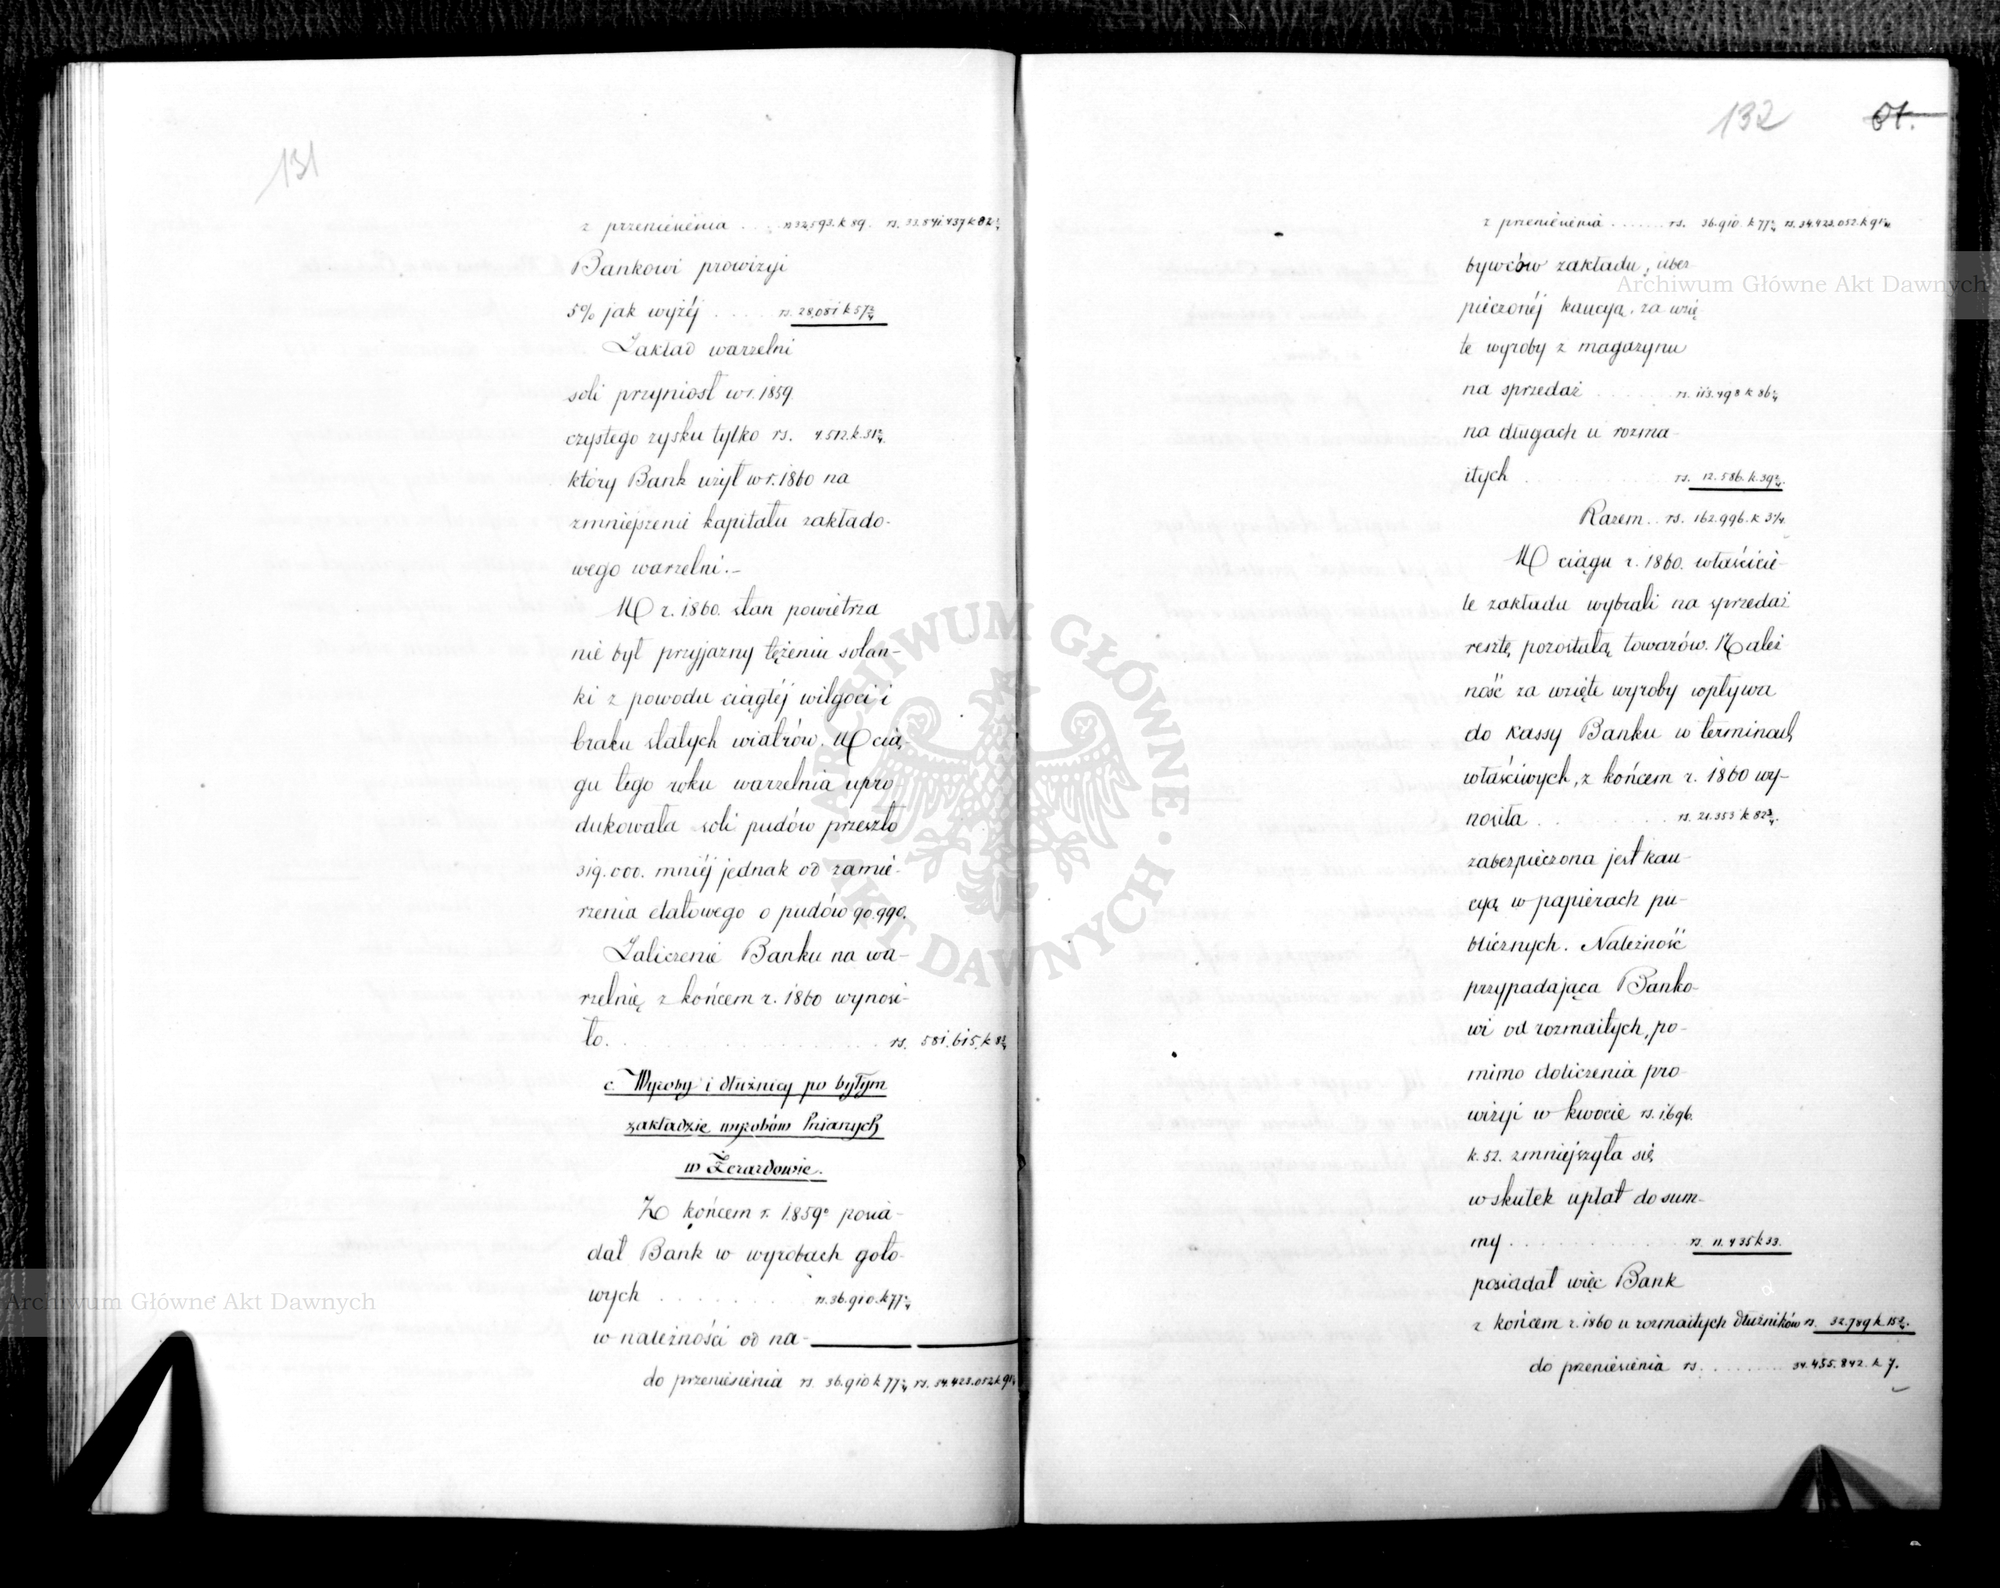 131
z przeniesienia . . . rs 32,593. k 89. rs. 33.841.437 k 82½
Bankowi prowizyi
5% jak wyżéj . . . . . rs. 28,081 k 57¾
Zakład warzelni
soli przyniosł w r. 1859.
czystego zysku tylko rs. 4.512. k. 31¾.
który Bank użył w r. 1860 na
zmniejszenie kapitału zakłado-
wego warzelni.-
W r. 1860. stan powietrza
nie był przyjazny tężeniu solan-
ki z powodu ciągłéj wilgoci i
braku stałych wiatrów. W cią
gu tego roku warzelnia upro-
dukowała soli pudów przeszło
319.000. mniéj jednak od zamie-
rzenia etatowego o pudów 90.990.
Zaliczenie Banku na wa-
rzelnię z końcem r. 1860 wynosi-
ło. . . . . . . . . rs. 581.615. k 8¾
c. Wyroby i dłużnicy po byłym
zakładzie wyrobów lnianych
w Żerardowie.
Z końcem r. 1859 posia-
dał Bank w wyrobach goto-
wych . . . . . . . rs. 36.910. k 77½
w należności od na-
do przeniesienia rs. 36.910 k 77½ rs. 34.423.052 k 91¼
132 61.
z przeniesienia . . . . . . rs. 36.910. k 77½ rs. 34.423.052. k 91¼
bywców zakładu, ubez-
pieczonéj kaucyą, za wzię
te wyroby z magazynu
na sprzedaż . . . . . . rs. 113.498 k 86¼
na długach u rozma-
itych . . . . . . . . rs. 12.586. k. 39¾
Razem . . rs. 162.996. k 3¼.
W ciągu r. 1860. właścicie-
le zakładu wybrali na sprzedaż
resztę pozostałą towarów. Należ
ność za wzięte wyroby wpływa
do Kassy Banku w terminach
właściwych, z końcem r. 1860 wy-
nosiła . . . . . . . rs. 21.353 k 82¾.
zabezpieczona jest kau-
cyą w papierach pu-
blicznych. Należność
przypadająca Banko-
wi od rozmaitych, po-
mimo doliczenia pro-
wizyi w kwocie rs. 1.696.
k. 52. zmniejszyła się
w skutek upłat do sum-
my . . . . . . . . rs. 11.435 k 33.
posiadał więc Bank
z końcem r. 1860 u rozmaitych dłużników rs. 32.789 k 15¾.
do przeniesienia rs. . . . . . . 34.455.842. k 7.
Archiwum Główne Akt Dawnych
ARCHIWUM GŁÓWNE · AKT DAWNYCH ·
Archiwum Główne Akt Dawnych